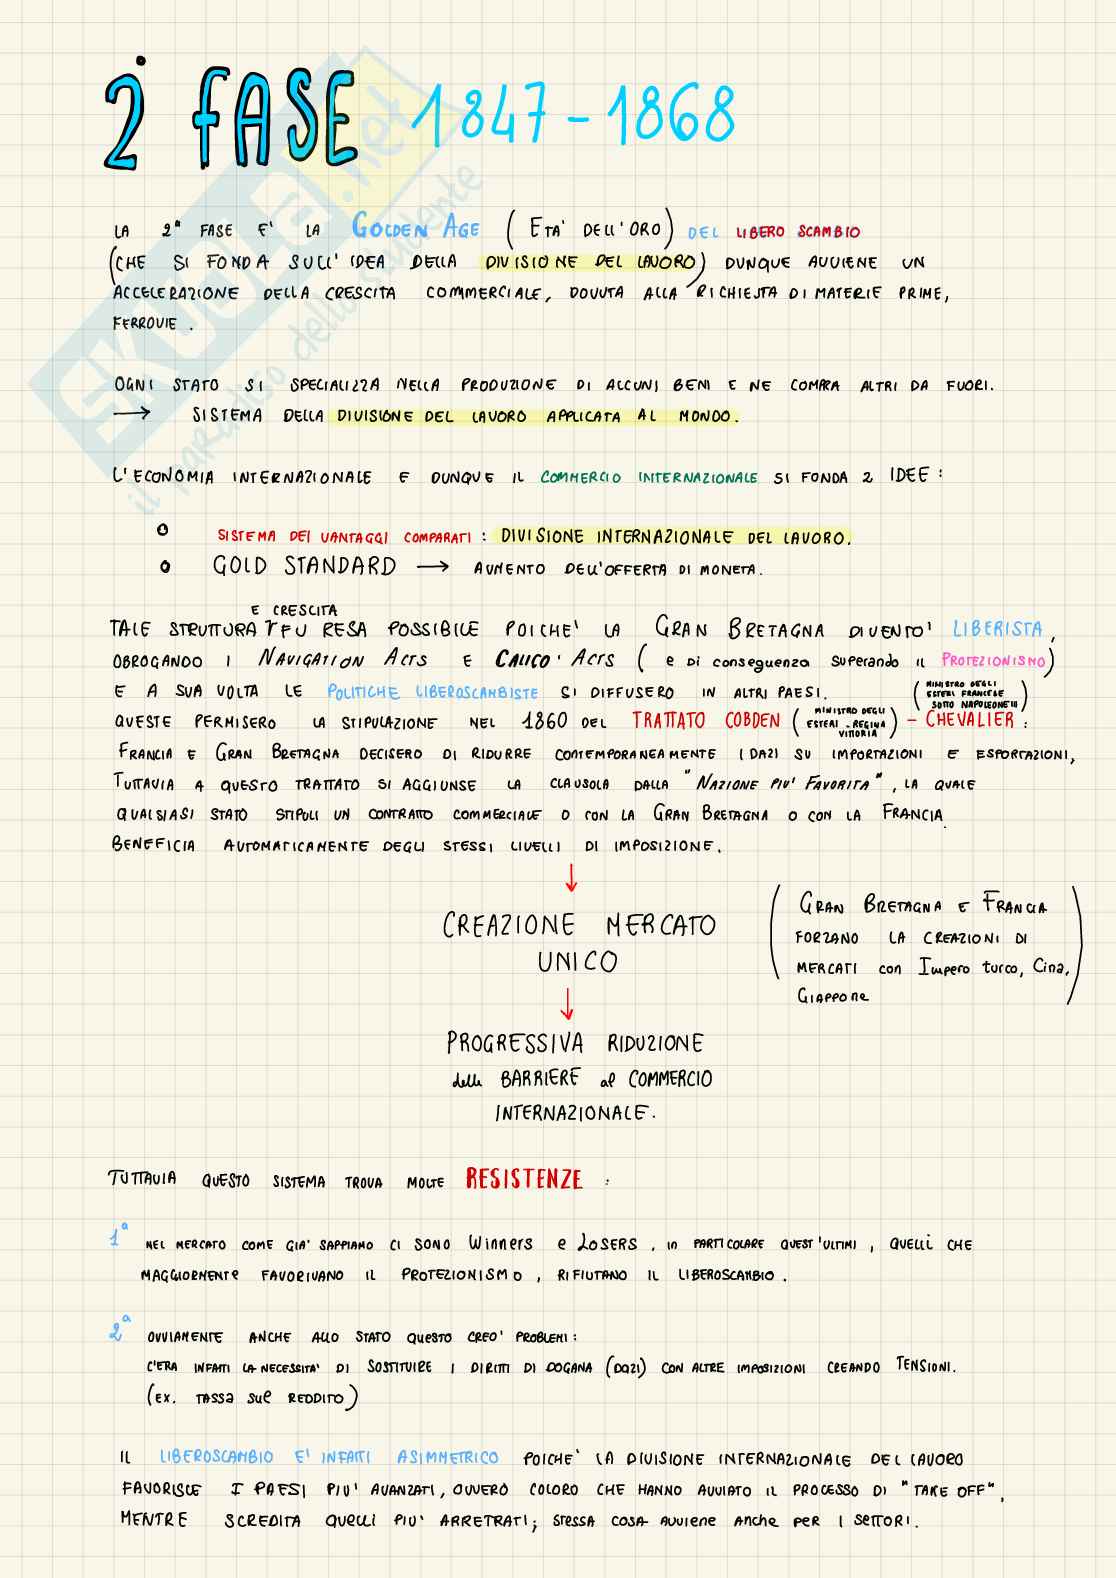 2° FASE 1847-1868
SKUOLA.net
il paradiso dello studente
LA 2ª FASE E' LA GOLDEN AGE (ETA' DELL'ORO) DEL LIBERO SCAMBIO
(CHE SI FONDA SULL'IDEA DELLA DIVISIONE DEL LAVORO) DUNQUE AVVIENE UN
ACCELERAZIONE DELLA CRESCITA COMMERCIALE, DOVUTA ALLA RICHIESTA DI MATERIE PRIME,
FERROVIE.
OGNI STATO SI SPECIALIZZA NELLA PRODUZIONE DI ALCUNI BENI E NE COMPRA ALTRI DA FUORI.
→ SISTEMA DELLA DIVISIONE DEL LAVORO APPLICATA AL MONDO.
L'ECONOMIA INTERNAZIONALE E DUNQUE IL COMMERCIO INTERNAZIONALE SI FONDA 2 IDEE:
SISTEMA DEI VANTAGGI COMPARATI: DIVISIONE INTERNAZIONALE DEL LAVORO.
GOLD STANDARD → AUMENTO DELL'OFFERTA DI MONETA.
E CRESCITA
TALE STRUTTURA FU RESA POSSIBILE POICHE' LA GRAN BRETAGNA DIVENTO' LIBERISTA,
OBROGANDO I NAVIGATION ACTS E CALICO' ACTS (e di conseguenza superando il PROTEZIONISMO)
E A SUA VOLTA LE POLITICHE LIBEROSCAMBISTE SI DIFFUSERO IN ALTRI PAESI. (MINISTRO DEGLI ESTERI FRANCESE SOTTO NAPOLEONE III)
QUESTE PERMISERO LA STIPULAZIONE NEL 1860 DEL TRATTATO COBDEN (MINISTRO DEGLI ESTERI - REGINA VITTORIA) - CHEVALIER:
FRANCIA E GRAN BRETAGNA DECISERO DI RIDURRE CONTEMPORANEAMENTE I DAZI SU IMPORTAZIONI E ESPORTAZIONI,
TUTTAVIA A QUESTO TRATTATO SI AGGIUNSE LA CLAUSOLA DALLA "NAZIONE PIU' FAVORITA", LA QUALE
QUALSIASI STATO STIPULI UN CONTRATTO COMMERCIALE O CON LA GRAN BRETAGNA O CON LA FRANCIA
BENEFICIA AUTOMATICAMENTE DEGLI STESSI LIVELLI DI IMPOSIZIONE.
CREAZIONE MERCATO
UNICO
(GRAN BRETAGNA E FRANCIA
FORZANO LA CREAZIONI DI
MERCATI con Impero turco, Cina,
Giappone)
PROGRESSIVA RIDUZIONE
delle BARRIERE al COMMERCIO
INTERNAZIONALE.
TUTTAVIA QUESTO SISTEMA TROVA MOLTE RESISTENZE:
1ª NEL MERCATO COME GIA' SAPPIAMO CI SONO Winners e LOSERS. in PARTICOLARE QUEST'ULTIMI, QUELLI CHE
MAGGIORMENTE FAVORIVANO IL PROTEZIONISMO, RIFIUTANO IL LIBEROSCAMBIO.
2ª OVVIAMENTE ANCHE ALLO STATO QUESTO CREO' PROBLEMI:
C'ERA INFATTI LA NECESSITA' DI SOSTITUIRE I DIRITTI DI DOGANA (DAZI) CON ALTRE IMPOSIZIONI CREANDO TENSIONI.
(EX. TASSA SUL REDDITO)
IL LIBEROSCAMBIO E' INFATTI ASIMMETRICO POICHE' LA DIVISIONE INTERNAZIONALE DEL LAVORO
FAVORISCE I PAESI PIU' AVANZATI, OVVERO COLORO CHE HANNO AVVIATO IL PROCESSO DI "TAKE OFF",
MENTRE SCREDITA QUELLI PIU' ARRETRATI; STESSA COSA AVVIENE ANCHE PER I SETTORI.